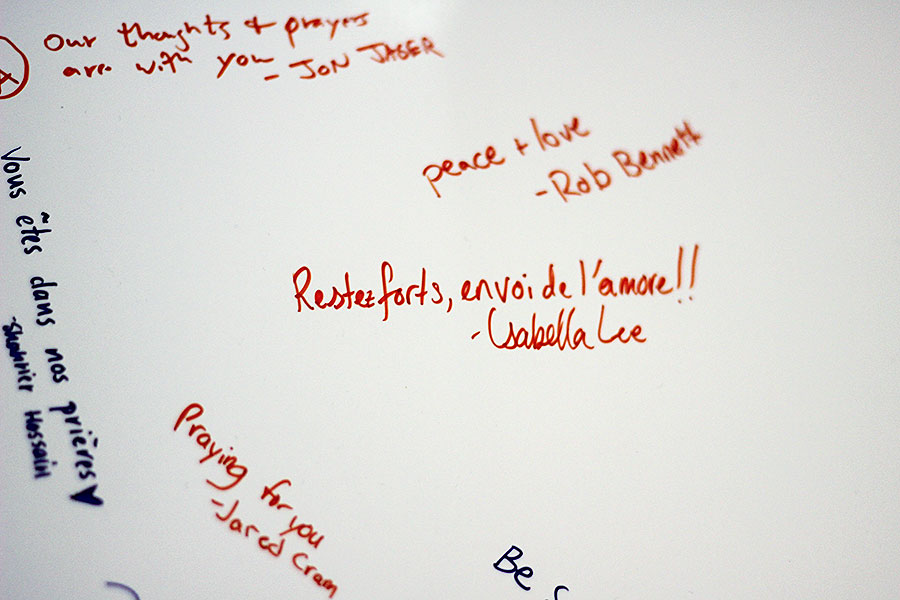 A
Our thoughts & prayers
are with you
- JON JAGER
peace + love
- Rob Bennett
Restez forts, envoi de l'amore!!
- Isabella Lee
Vous êtes dans nos prières
- Shahrier Hossain
Praying for you
- Jared Cram
Be